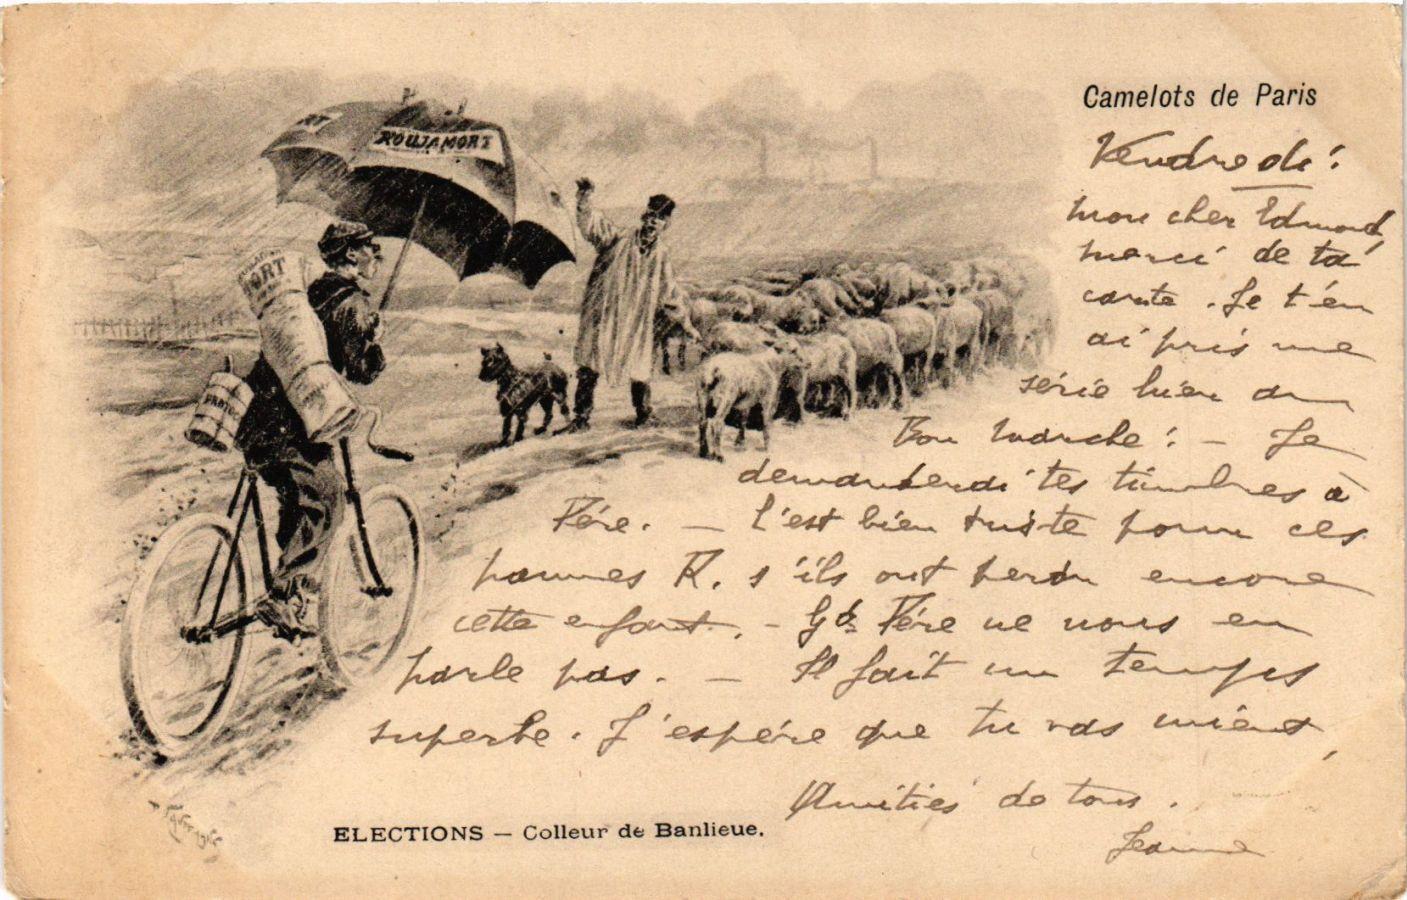 Camelots de Paris
Vendredi :
mon cher Edmond,
merci de ta
carte. Je t'en
ai pris une
série bien du
Bon marché ! — Je
demanderai tes timbres à
Père. — C'est bien triste pour ces
pauvres R. s'ils ont perdu encore
cette enfant. — Gd Père ne nous en
parle pas. — Il fait un temps
superbe. J'espère que tu vas mieux,
Amitiés de tous.
Jeanne
RT
ROUJAMORT
MORT
ELECTIONS — Colleur de Banlieue.